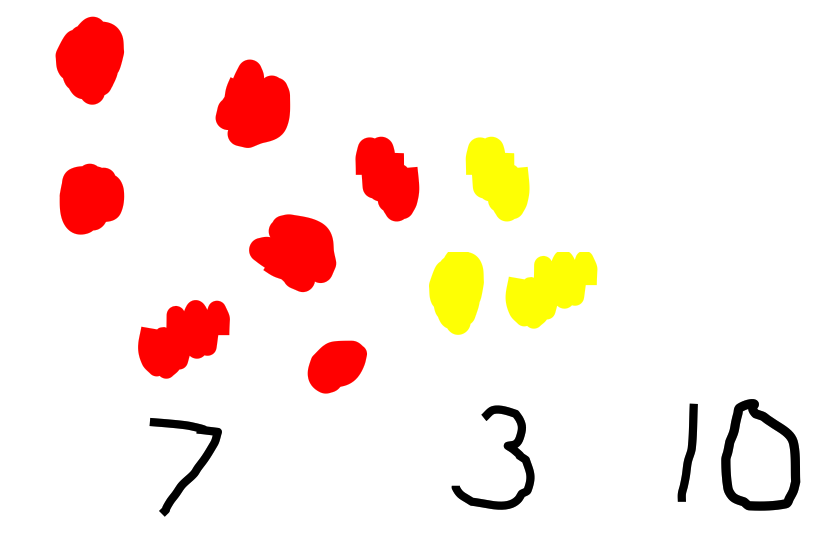 7 3 10